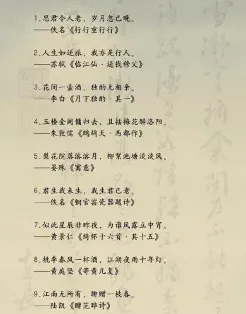 1.思君令人老，岁月忽已晚。
——佚名《行行重行行》
2.人生如逆旅，我亦是行人。
——苏轼《临江仙·送钱穆父》
3.花间一壶酒，独酌无相亲。
——李白《月下独酌·其一》
4.玉楼金阙慵归去，且插梅花醉洛阳。
——朱敦儒《鹧鸪天·西都作》
5.梨花院落溶溶月，柳絮池塘淡淡风。
——晏殊《寓意》
6.君生我未生，我生君已老。
——佚名《铜官窑瓷器题诗》
7.似此星辰非昨夜，为谁风露立中宵。
——黄景仁《绮怀十六首·其十五》
8.桃李春风一杯酒，江湖夜雨十年灯。
——黄庭坚《寄黄几复》
9.江南无所有，聊赠一枝春。
——陆凯《赠范晔诗》